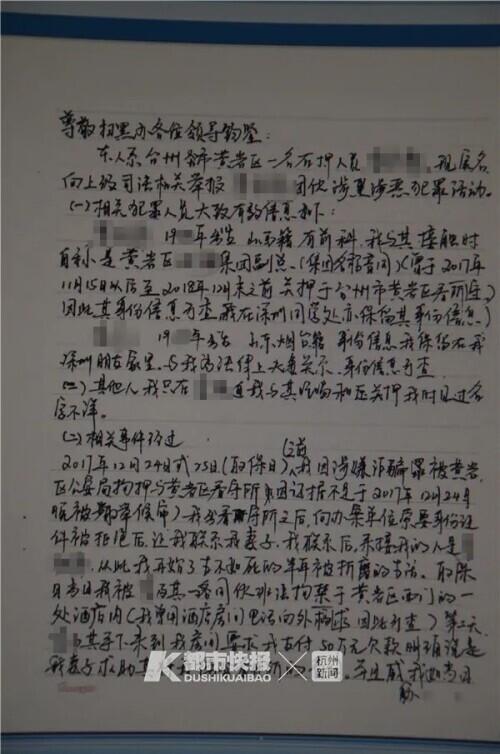 尊敬扫黑办各位领导钧鉴:
本人系台州市黄岩区一名在押人员 现匿名
向上级司法相关举报 团伙涉黑涉恶犯罪活动。
(一)相关犯罪人员大致有的信息如下:
19 年出生 山西籍 有前科,我与其接触时
自称是黄岩区 集团副总。(集团名称音同)(曾于2017年
11月15日以后至2018年12月末之前关押于台州市黄岩区看守所)
因此其身份信息可查 我在深圳同学处亦保留其身份信息)
19 年 山东烟台籍 身份信息我保留在我
深圳朋友家里,与我法律上夫妻关系,身份信息可查
(二)其他人我只在 我与其 和在关押我时见过名
字不详。
(二)相关事件经过
2017年12月24日或25日(取保日)之前 我因涉嫌诈骗罪被黄岩
区公安局拘押与黄岩区看守所(因证据不足于2017年12月24日
晚被取保候审)我出看守所之后,向办案单位索要身份证
件被拒绝后,让我联系我妻子,我联系后,来接我的人是
从此我开始了生不如死的半年被折磨的生活。取保
日当日我被 及其一路同伙非法拘禁于黄岩区西门的一
处酒店内(我曾用酒店房间电话向外 求 因此可查)第二天
及其手下来到我房间要求我支付50万元欠款明确说是
我妻子求助
K都市快报
DUSHIKUAIBAO
杭州新闻